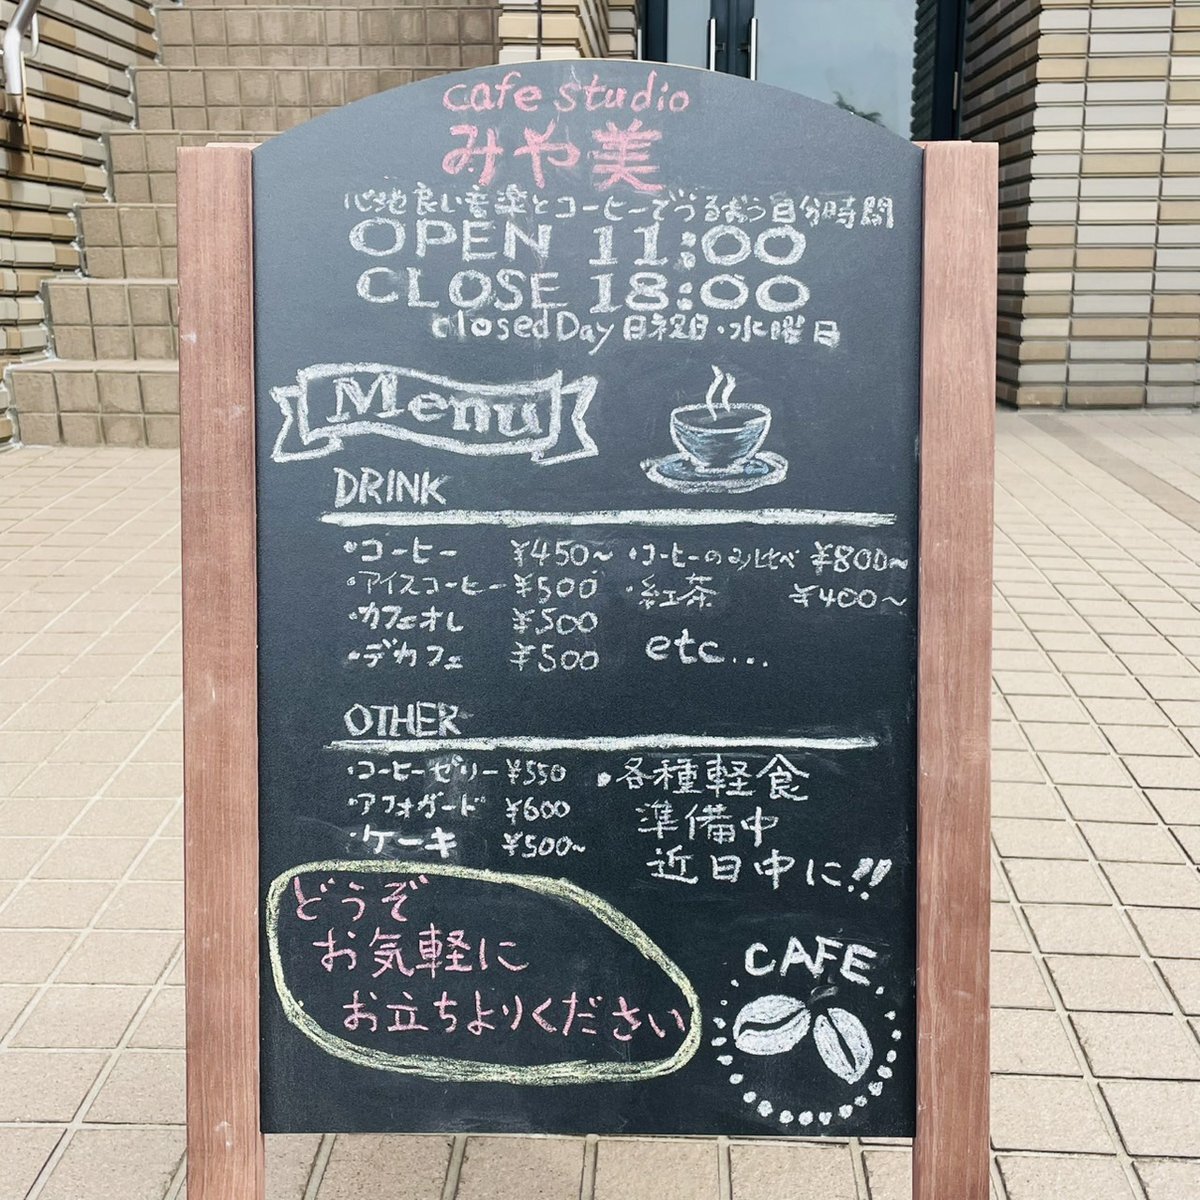 cafe studio
みや美
心地良い音楽とコーヒーでうるおう自分時間
OPEN 11:00
CLOSE 18:00
closed Day 日祝日・水曜日
Menu
DRINK
・コーヒー ¥450～
・アイスコーヒー ¥500
・カフェオレ ¥500
・デカフェ ¥500
・コーヒーのみ比べ ¥800～
・紅茶 ¥400～
etc...
OTHER
・コーヒーゼリー ¥550
・アフォガード ¥600
・ケーキ ¥500～
・各種軽食
準備中
近日中に!!
どうぞ
お気軽に
お立ちよりください
CAFE